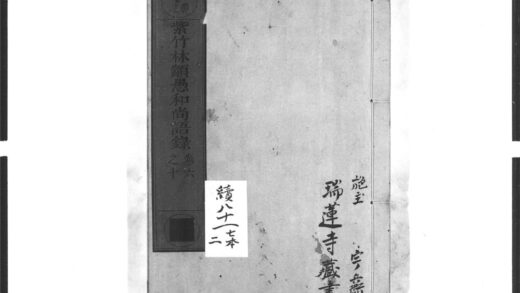 紫竹林顓愚和尚語錄
卷六
之十
續八十一
七本
二
施主
瑞蓮寺藏書